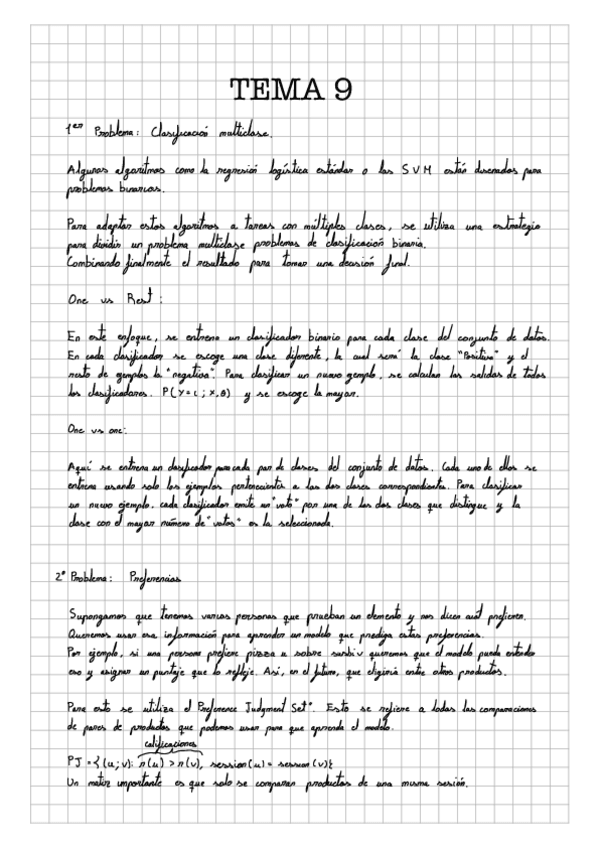 TEMA 9
1er Problema: Clasificació multiclase.
Algunos algoritmos como la regresión logística estándar o las SVM están disenados para
problemas binarios.
Para adaptar estos algoritmos a tareas con múltiples clases, se utiliza una estrategia
para dividir un problema multiclase problemas de clasificación binaria.
Combinando finalmente el resultado para tomar una decisión final.
One vs Rest:
En este enfoque, se entrena un clasificador binario para cada clase del conjunto de datos.
En cada clasificador se escoge una clase diferente, la cual será la clase "Positiva" y el
resto de ejemplos la "negativa". Para clasificar un nuevo ejemplo, se calculan las salidas de todos
los clasificadores. P(Y=c; x,θ) y se escoge la mayor.
One vs one:
Aquí se entrena un clasificador para cada par de clases del conjunto de datos. Cada uno de ellos se
entrena usando solo los ejemplos pertenecientes a las dos clases correspondientes. Para clasificar
un nuevo ejemplo, cada clasificador emite un "voto" por una de las dos clases que distingue y la
clase con el mayor número de "votos" es la seleccionada.
2º Problema: Preferencias
Supongamos que tenemos varias personas que prueban un elemento y nos dicen cuál prefieren.
Queremos usar esa información para aprender un modelo que prediga estas preferencias.
Por ejemplo, si una persona prefiere pizza a sobre sushi queremos que el modelo pueda
eso y asignar un puntaje que lo refleje. Así, en el futuro, que eligiría entre otros productos.
Para esto se utiliza el Preference Judgment Set". Esto se refiere a todas las comparaciones
de pares de productos que podemos usar para que aprenda el modelo.
calificaciones
PJ = {(u;v): r(u) > r(v), session(u) = session(v)}
Un matiz importante es que solo se comparan productos de una misma sesión.